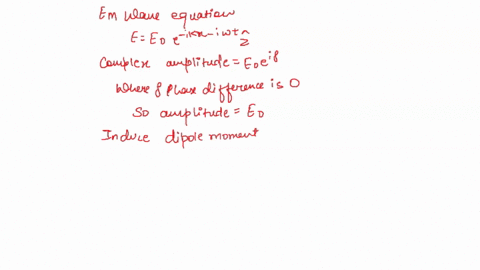 Em wave equation
E = E₀ e^{-ikx-iωt} ẑ
Complex amplitude = E₀e^{iδ}
Where δ phase difference is 0
So amplitude = E₀
Induce dipole moment